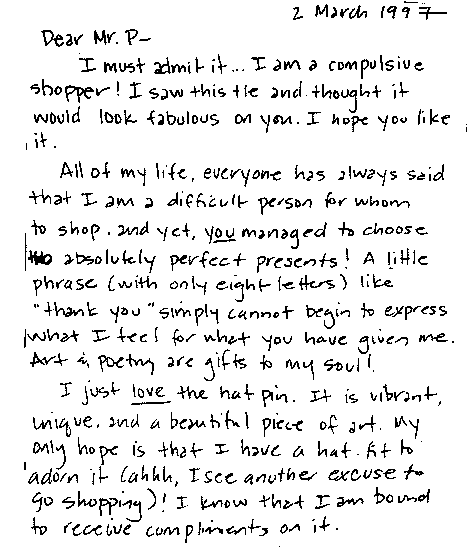 2 March 1997
Dear Mr. P-
I must admit it... I am a compulsive
shopper! I saw this tie and thought it
would look fabulous on you. I hope you like
it.
All of my life, everyone has always said
that I am a difficult person for whom
to shop, and yet, you managed to choose
absolutely perfect presents! A little
phrase (with only eight letters) like
"thank you" simply cannot begin to express
what I feel for what you have given me.
Art & poetry are gifts to my soul!
I just love the hat pin. It is vibrant,
unique, and a beautiful piece of art. My
only hope is that I have a hat fit to
adorn it (ahhh, I see another excuse to
go shopping)! I know that I am bound
to receive compliments on it.